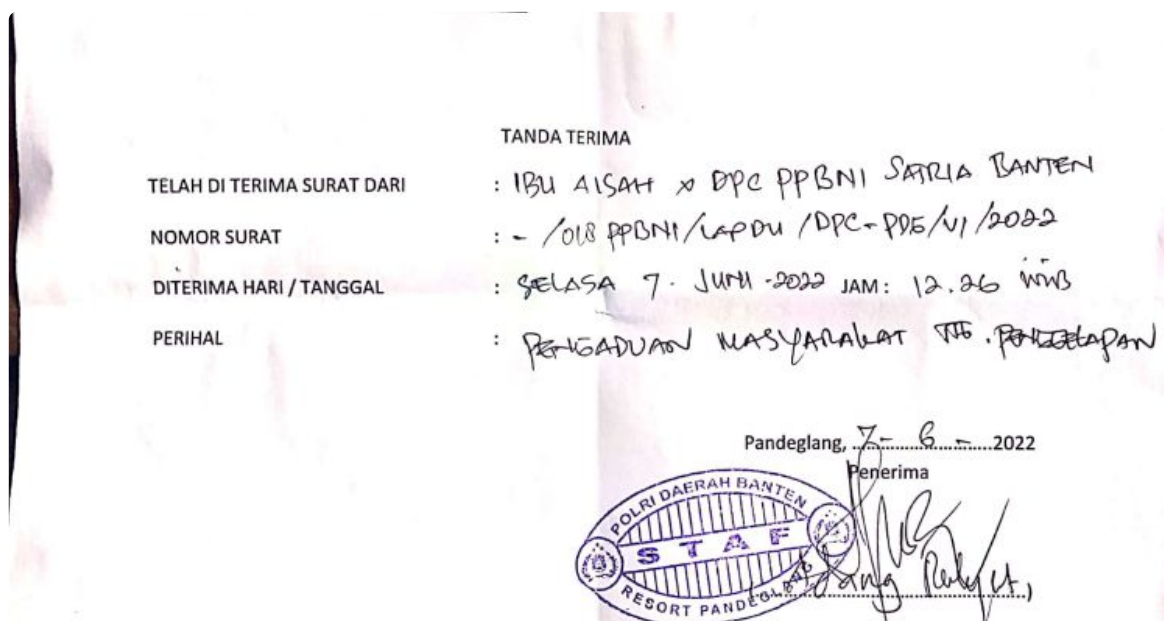 TANDA TERIMA
TELAH DI TERIMA SURAT DARI : IBU AISAH DPC PPBNI SATRIA BANTEN
NOMOR SURAT : - /018 PPBNI/LAPDU/DPC-PDG/VI/2022
DITERIMA HARI / TANGGAL : SELASA 7. JUNI -2022 JAM: 12.26 WIB
PERIHAL : PENGADUAN MASYARAKAT TTG. PENGGELAPAN
Pandeglang, 7 - 6 - 2022
Penerima
POLRI DAERAH BANTEN
STAF
RESORT PANDEGLANG